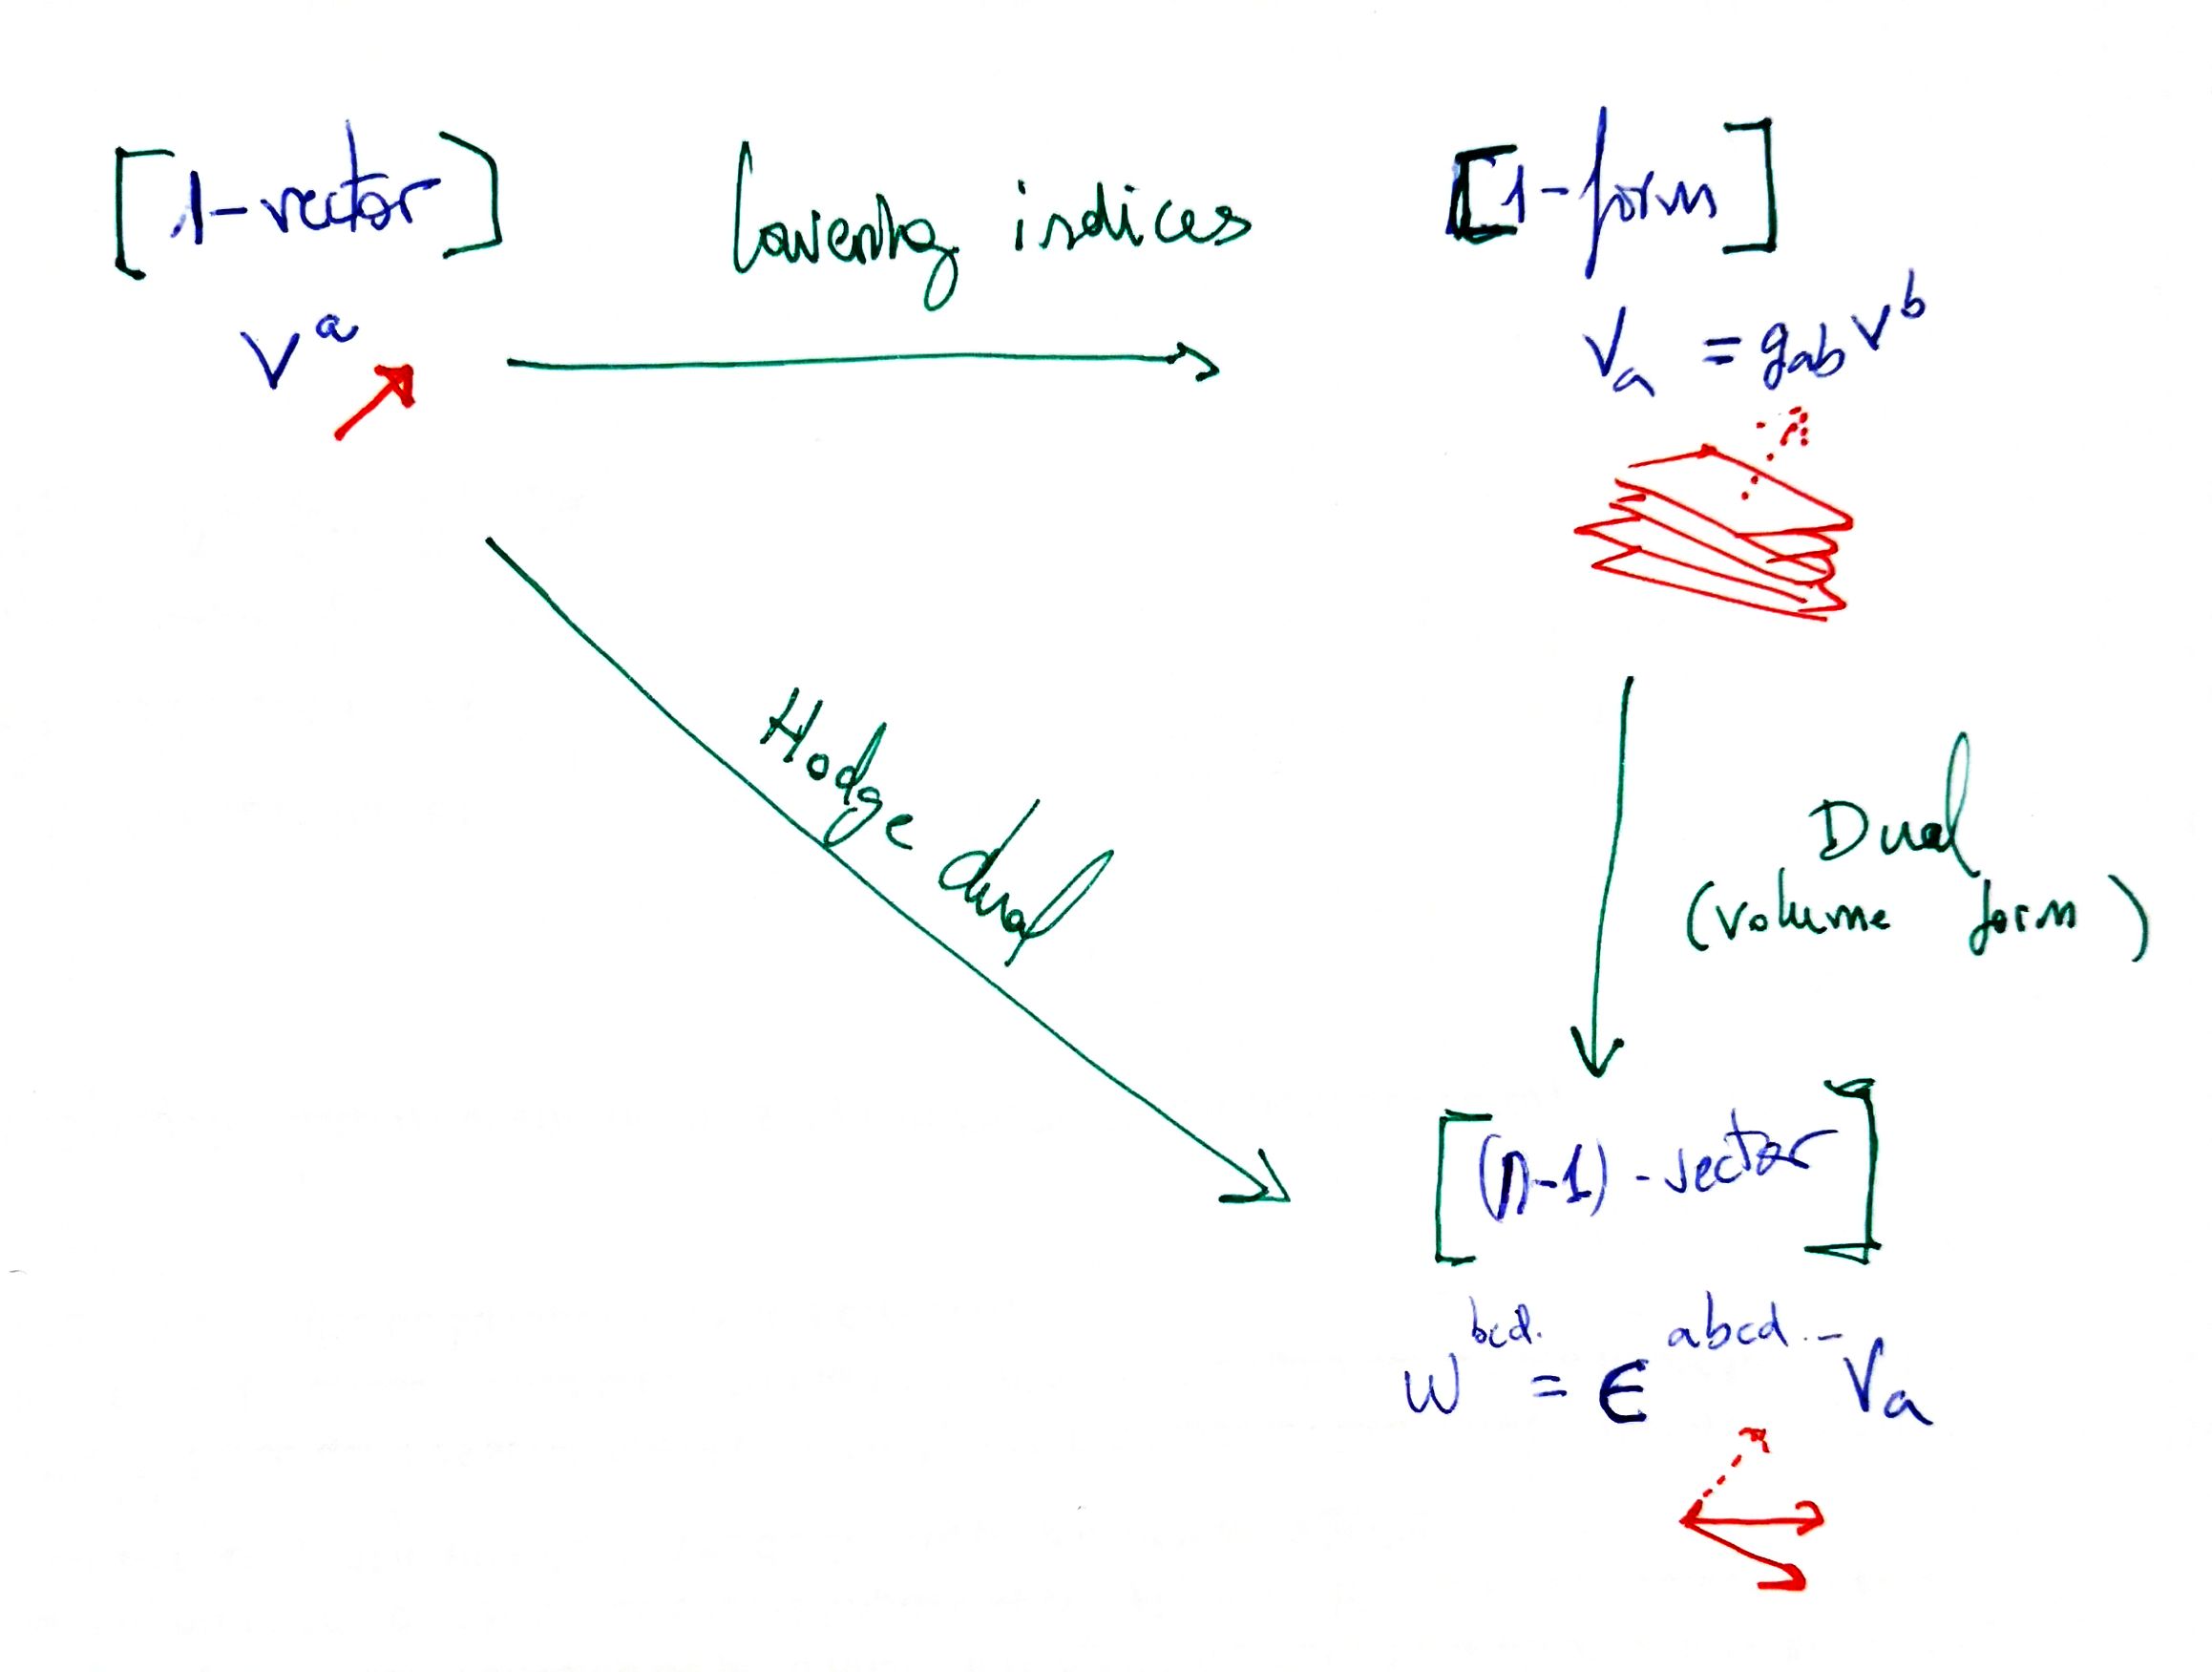 [1-vector]
lowering indices
[1-form]
vᵃ
vₐ = g_ab vᵇ
Hodge dual
Dual
(volume form)
[(n-1)-vector]
w^bcd.. = ϵ^abcd.. vₐ